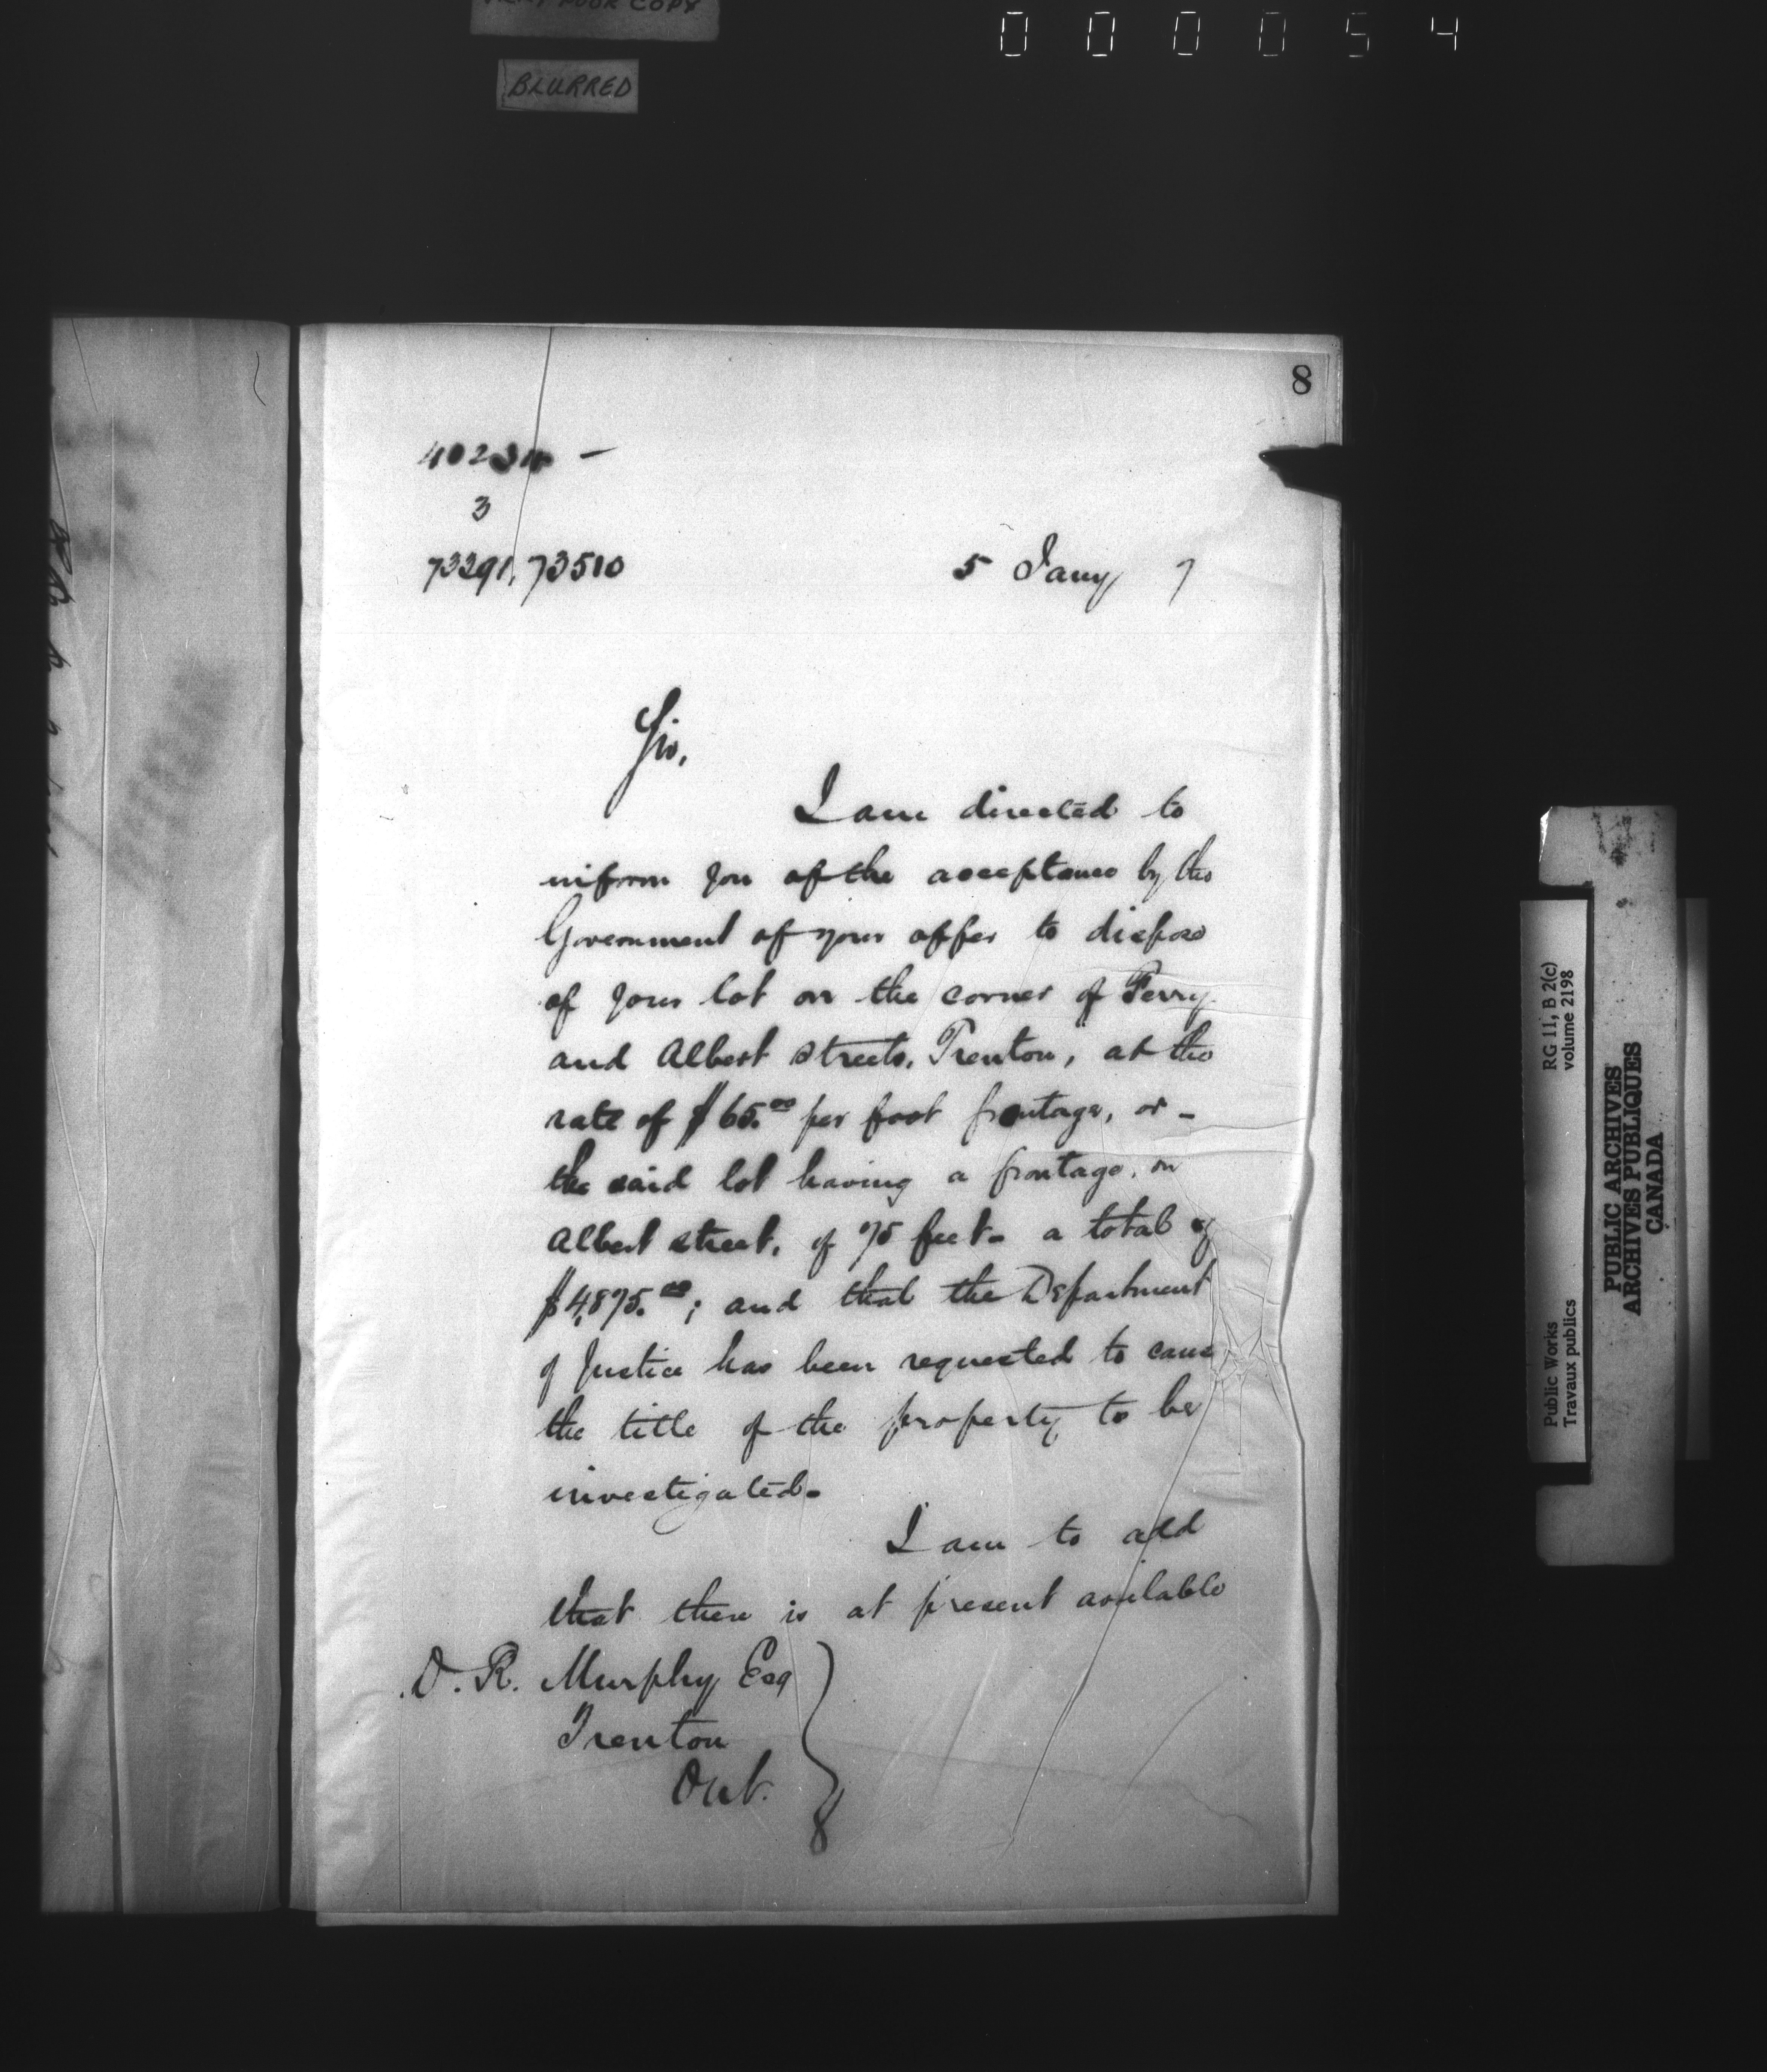 POOR COPY
BLURRED
000054
8
3
73291, 73510
5 Jany 7
Sir,
I am directed to
inform you of the acceptance by the
Government of your offer to dispose
of your lot on the corner of Ferry
and Albert streets, Trenton, at the
rate of $65.00 per foot frontage, or -
the said lot having a frontage, on
Albert street, of 75 feet - a total of
$4,875.00; and that the Department
of Justice has been requested to cause
the title of the property to be
investigated -
I am to add
that there is at present available
O. R. Murphy Esq
Trenton
Ont.
Public Works
Travaux publics
RG 11, B 2(c)
volume 2198
PUBLIC ARCHIVES
ARCHIVES PUBLIQUES
CANADA